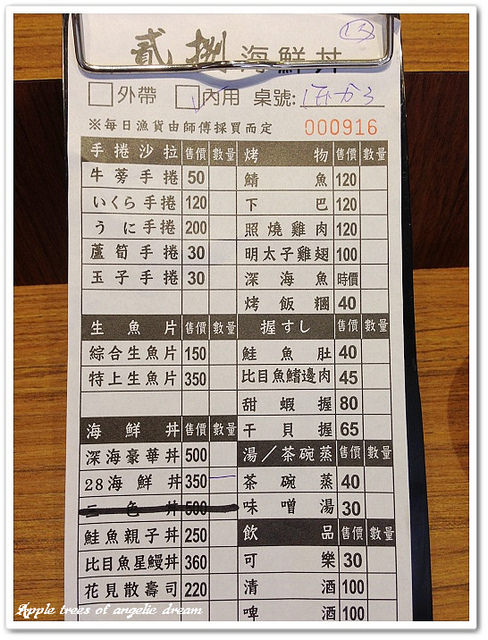 貳捌海鮮丼
13
外帶 內用 桌號:
※每日漁貨由師傅採買而定 000916
手捲沙拉 售價 數量
牛蒡手捲 50
いくら手捲 120
うに手捲 200
蘆筍手捲 30
玉子手捲 30
生魚片 售價 數量
綜合生魚片 150
特上生魚片 350
海鮮丼 售價 數量
深海豪華丼 500
28海鮮丼 350
三色丼 500
鮭魚親子丼 250
比目魚星鰻丼 360
花見散壽司 220
烤物 售價 數量
鯖魚 120
下巴 120
照燒雞肉 120
明太子雞翅 100
深海魚 時價
烤飯糰 40
握すし 售價 數量
鮭魚肚 40
比目魚鰭邊肉 45
甜蝦握 80
干貝握 65
湯/茶碗蒸 售價 數量
茶碗蒸 40
味噌湯 30
飲品 售價 數量
可樂 30
清酒 100
啤酒 100
Apple trees of angelic dream